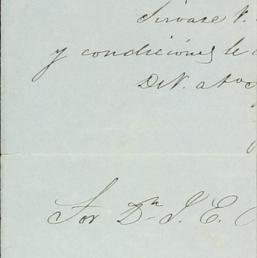 Sirvase V.
y condiciones le
De V. atto
Sor Dn. J. E.